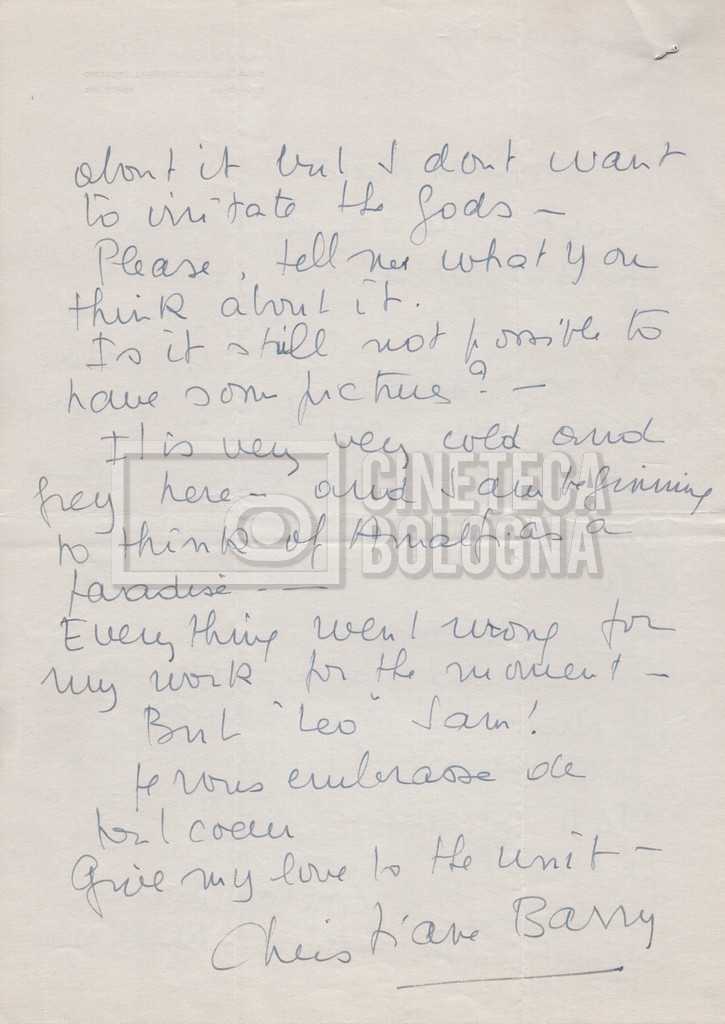 about it but I dont want
to irritate the gods –
Please, tell me what you
think about it.
Is it still not possible to
have some pictures? –
It is very very cold and
grey here – and I am beginning
to think of Amalfi as a
paradise – –
Everything went wrong for
my work for the moment –
But "Leo" I am!
je vous embrasse de
tout coeur
Give my love to the unit –
Christiane Barry
CINETECA
BOLOGNA